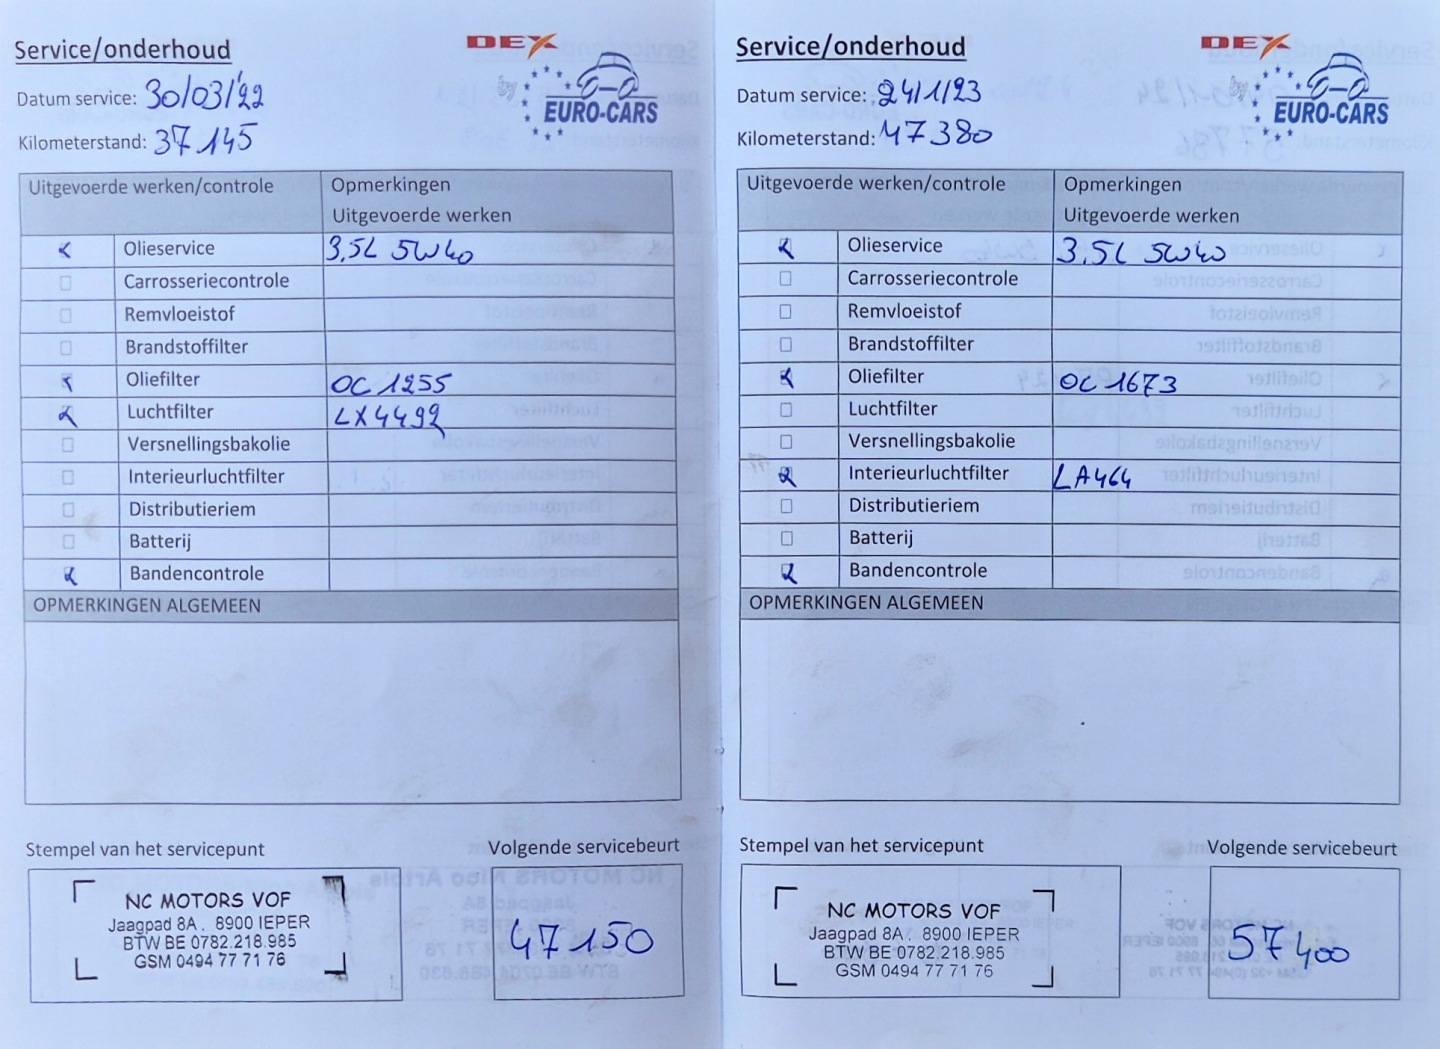 Service/onderhoud
DEX
by EURO-CARS
Datum service: 30/03/'22
Kilometerstand: 37145
Uitgevoerde werken/controle
Opmerkingen
Uitgevoerde werken
Olieservice 3,5L 5W40
Carrosseriecontrole
Remvloeistof
Brandstoffilter
Oliefilter OC 1255
Luchtfilter LX4492
Versnellingsbakolie
Interieurluchtfilter
Distributieriem
Batterij
Bandencontrole
OPMERKINGEN ALGEMEEN
Stempel van het servicepunt
Volgende servicebeurt
NC MOTORS VOF
Jaagpad 8A . 8900 IEPER
BTW BE 0782.218.985
GSM 0494 77 71 76
47150
Service/onderhoud
DEX
by EURO-CARS
Datum service: 24/1/23
Kilometerstand: 47380
Uitgevoerde werken/controle
Opmerkingen
Uitgevoerde werken
Olieservice 3,5L 5W40
Carrosseriecontrole
Remvloeistof
Brandstoffilter
Oliefilter OC 1673
Luchtfilter
Versnellingsbakolie
Interieurluchtfilter LA464
Distributieriem
Batterij
Bandencontrole
OPMERKINGEN ALGEMEEN
Stempel van het servicepunt
Volgende servicebeurt
NC MOTORS VOF
Jaagpad 8A . 8900 IEPER
BTW BE 0782.218.985
GSM 0494 77 71 76
57400